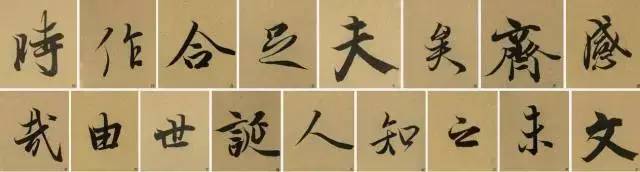 時作合足夫矣齊感
哉由世誕人知之未文